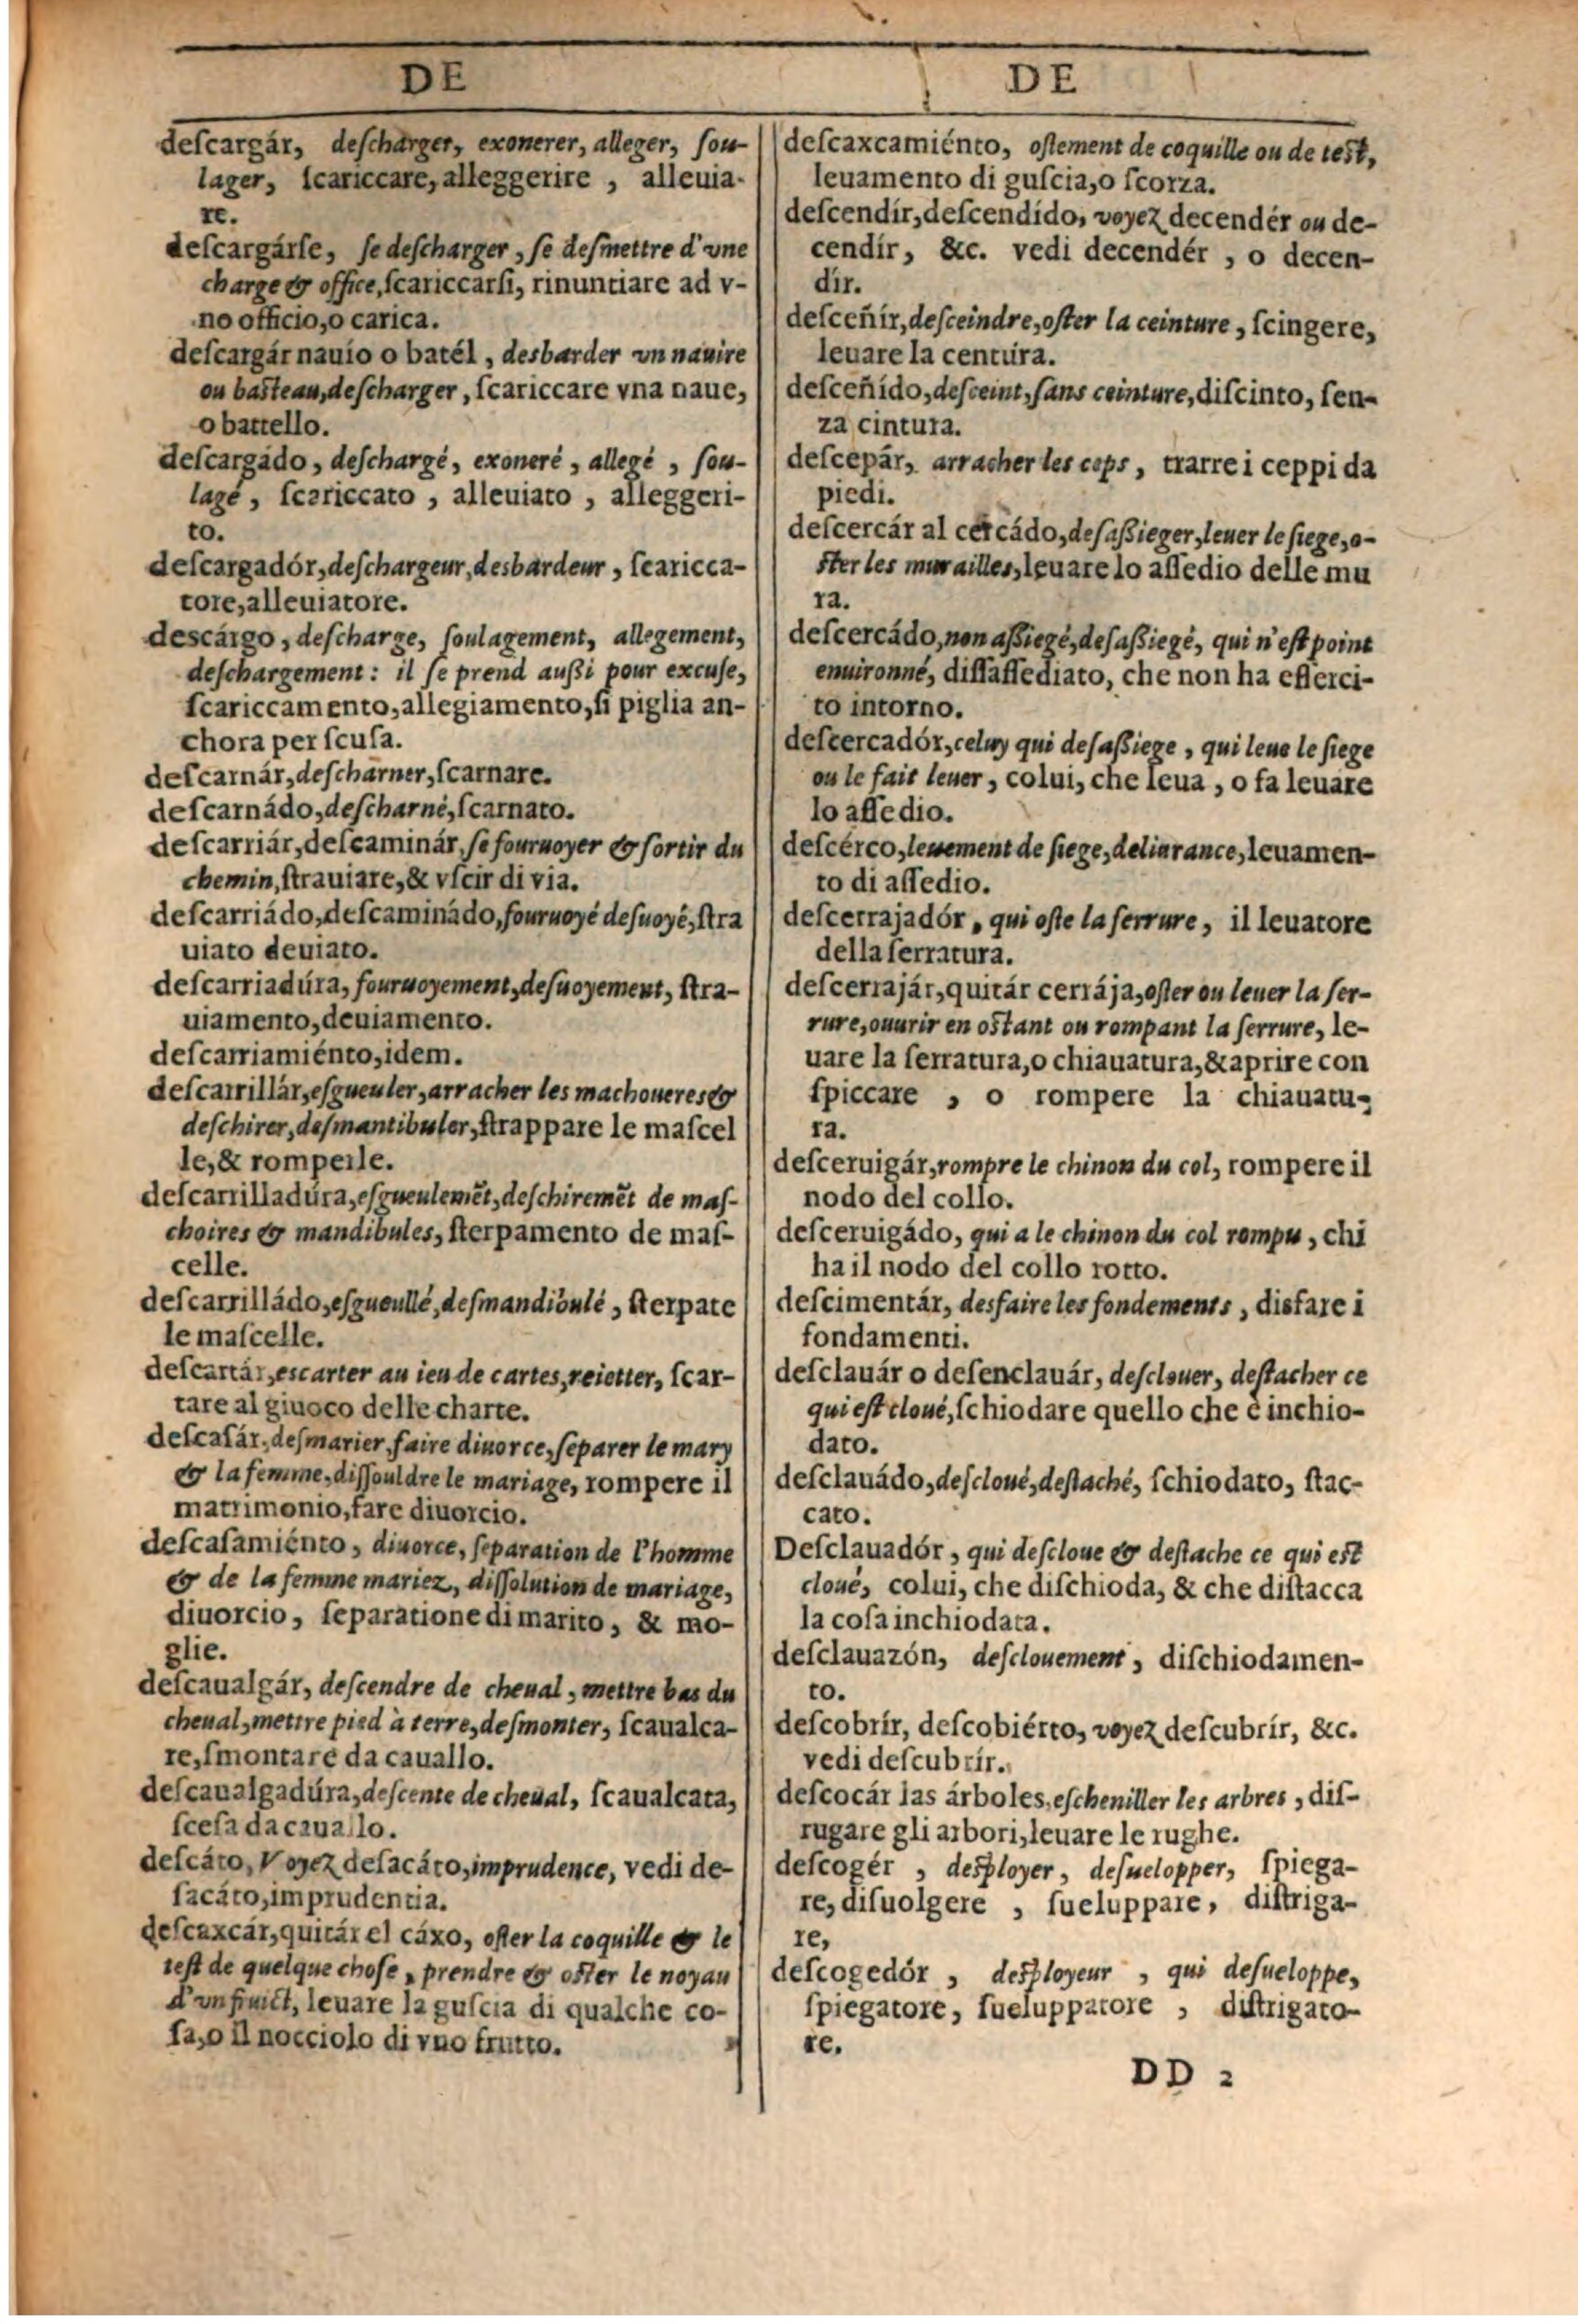 DE
deſcargár, deſcharger, exonerer, alleger, ſou-
lager, ſcariccare, alleggerire , alleuia-
re.
deſcargárſe, ſe deſcharger, ſe deſmettre d'vne
charge & office, ſcariccarſi, rinuntiare ad v-
no officio, o carica.
deſcargár nauío o batél, desbarder vn nauire
ou baſteau, deſcharger, ſcariccare vna naue,
o battello.
deſcargádo, deſchargé, exoneré, allegé , ſou-
lagé , ſcariccato , alleuiato , alleggeri-
to.
deſcargadór, deſchargeur, desbardeur, ſcaricca-
tore, alleuiatore.
descárgo, deſcharge, ſoulagement, allegement,
deſchargement: il ſe prend außi pour excuſe,
ſcariccamento, allegiamento, ſi piglia an-
chora per ſcuſa.
deſcarnár, deſcharner, ſcarnare.
deſcarnádo, deſcharné, ſcarnato.
deſcarriár, deſcaminár, ſe fouruoyer & ſortir du
chemin, ſtrauiare, & vſcir di via.
deſcarriádo, deſcaminádo, fouruoyé deſuoyé, ſtra
uiato deuiato.
deſcarriadúra, fouruoyement, deſuoyement, ſtra-
uiamento, deuiamento.
deſcarriamiénto, idem.
deſcarrillár, eſgueuler, arracher les machoueres &
deſchirer, deſmantibuler, ſtrappare le maſcel
le, & romperle.
deſcarrilladúra, eſgueulemẽt, deſchiremẽt de maſ-
choires & mandibules, ſterpamento de maſ-
celle.
deſcarrilládo, eſgueullé, deſmandibulé , ſterpate
le maſcelle.
deſcartár, escarter au ieu de cartes, reietter, ſcar-
tare al giuoco delle charte.
deſcaſár, deſmarier, faire diuorce, ſeparer le mary
& la femme, diſſouldre le mariage, rompere il
matrimonio, fare diuorcio.
deſcaſamiénto, diuorce, ſeparation de l'homme
& de la femme mariez, diſſolution de mariage,
diuorcio, ſeparatione di marito, & mo-
glie.
deſcaualgár, deſcendre de cheual, mettre bas du
cheual, mettre pied à terre, deſmonter, ſcaualca-
re, ſmontare da cauallo.
deſcaualgadúra, deſcente de cheual, ſcaualcata,
ſceſa da cauallo.
deſcáto, Voyez deſacáto, imprudence, vedi de-
ſacáto, imprudentia.
deſcaxcár, quitár el cáxo, oſter la coquille & le
teſt de quelque choſe, prendre & oſter le noyau
d'vn fruict, leuare la guſcia di qualche co-
ſa, o il nocciolo di vno frutto.
DE
deſcaxcamiénto, oſtement de coquille ou de teſt,
leuamento di guſcia, o ſcorza.
deſcendír, deſcendído, voyez decendér ou de-
cendír, &c. vedi decendér , o decen-
dír.
deſceñír, deſceindre, oſter la ceinture, ſcingere,
leuare la centúra.
deſceñído, deſceint, ſans ceinture, diſcinto, ſen-
za cintura.
deſcepár, arracher les ceps, trarre i ceppi da
piedi.
deſcercár al cercádo, deſaßieger, leuer le ſiege, o-
ſter les murailles, leuare lo aſſedio delle mu
ra.
deſcercádo, non aßiegé, deſaßiegé, qui n'eſt point
enuironné, diſſaſſediato, che non ha eſſerci-
to intorno.
deſcercadór, celuy qui deſaßiege, qui leue le ſiege
ou le fait leuer, colui, che leua , o fa leuare
lo aſſedio.
deſcérco, leuement de ſiege, deliurance, leuamen-
to di aſſedio.
deſcerrajadór, qui oſte la ſerrure, il leuatore
della ſerratura.
deſcerrajár, quitár cerrája, oſter ou leuer la ſer-
rure, ouurir en oſtant ou rompant la ſerrure, le-
uare la ſerratura, o chiauatura, & aprire con
ſpiccare , o rompere la chiauatu-
ra.
deſceruigár, rompre le chinon du col, rompere il
nodo del collo.
deſceruigádo, qui a le chinon du col rompu, chi
ha il nodo del collo rotto.
deſcimentár, desfaire les fondements, disfare i
fondamenti.
deſclauár o deſenclauár, deſclouer, deſtacher ce
qui eſt cloué, ſchiodare quello che è inchio-
dato.
deſclauádo, deſcloué, deſtaché, ſchiodato, ſtac-
cato.
Deſclauadór, qui deſcloue & deſtache ce qui eſt
cloué, colui, che diſchioda, & che diſtacca
la coſa inchiodata.
deſclauazón, deſclouement, diſchiodamen-
to.
deſcobrír, deſcobiérto, voyez deſcubrír, &c.
vedi deſcubrír.
deſcocár las árboles, eſcheniller les arbres, diſ-
rugare gli arbori, leuare le rughe.
deſcogér , deſployer, deſuelopper, ſpiega-
re, diſuolgere , ſueluppare, diſtriga-
re,
deſcogedór , deſployeur , qui deſueloppe,
ſpiegatore, ſueluppatore , diſtrigato-
re.
DD 2